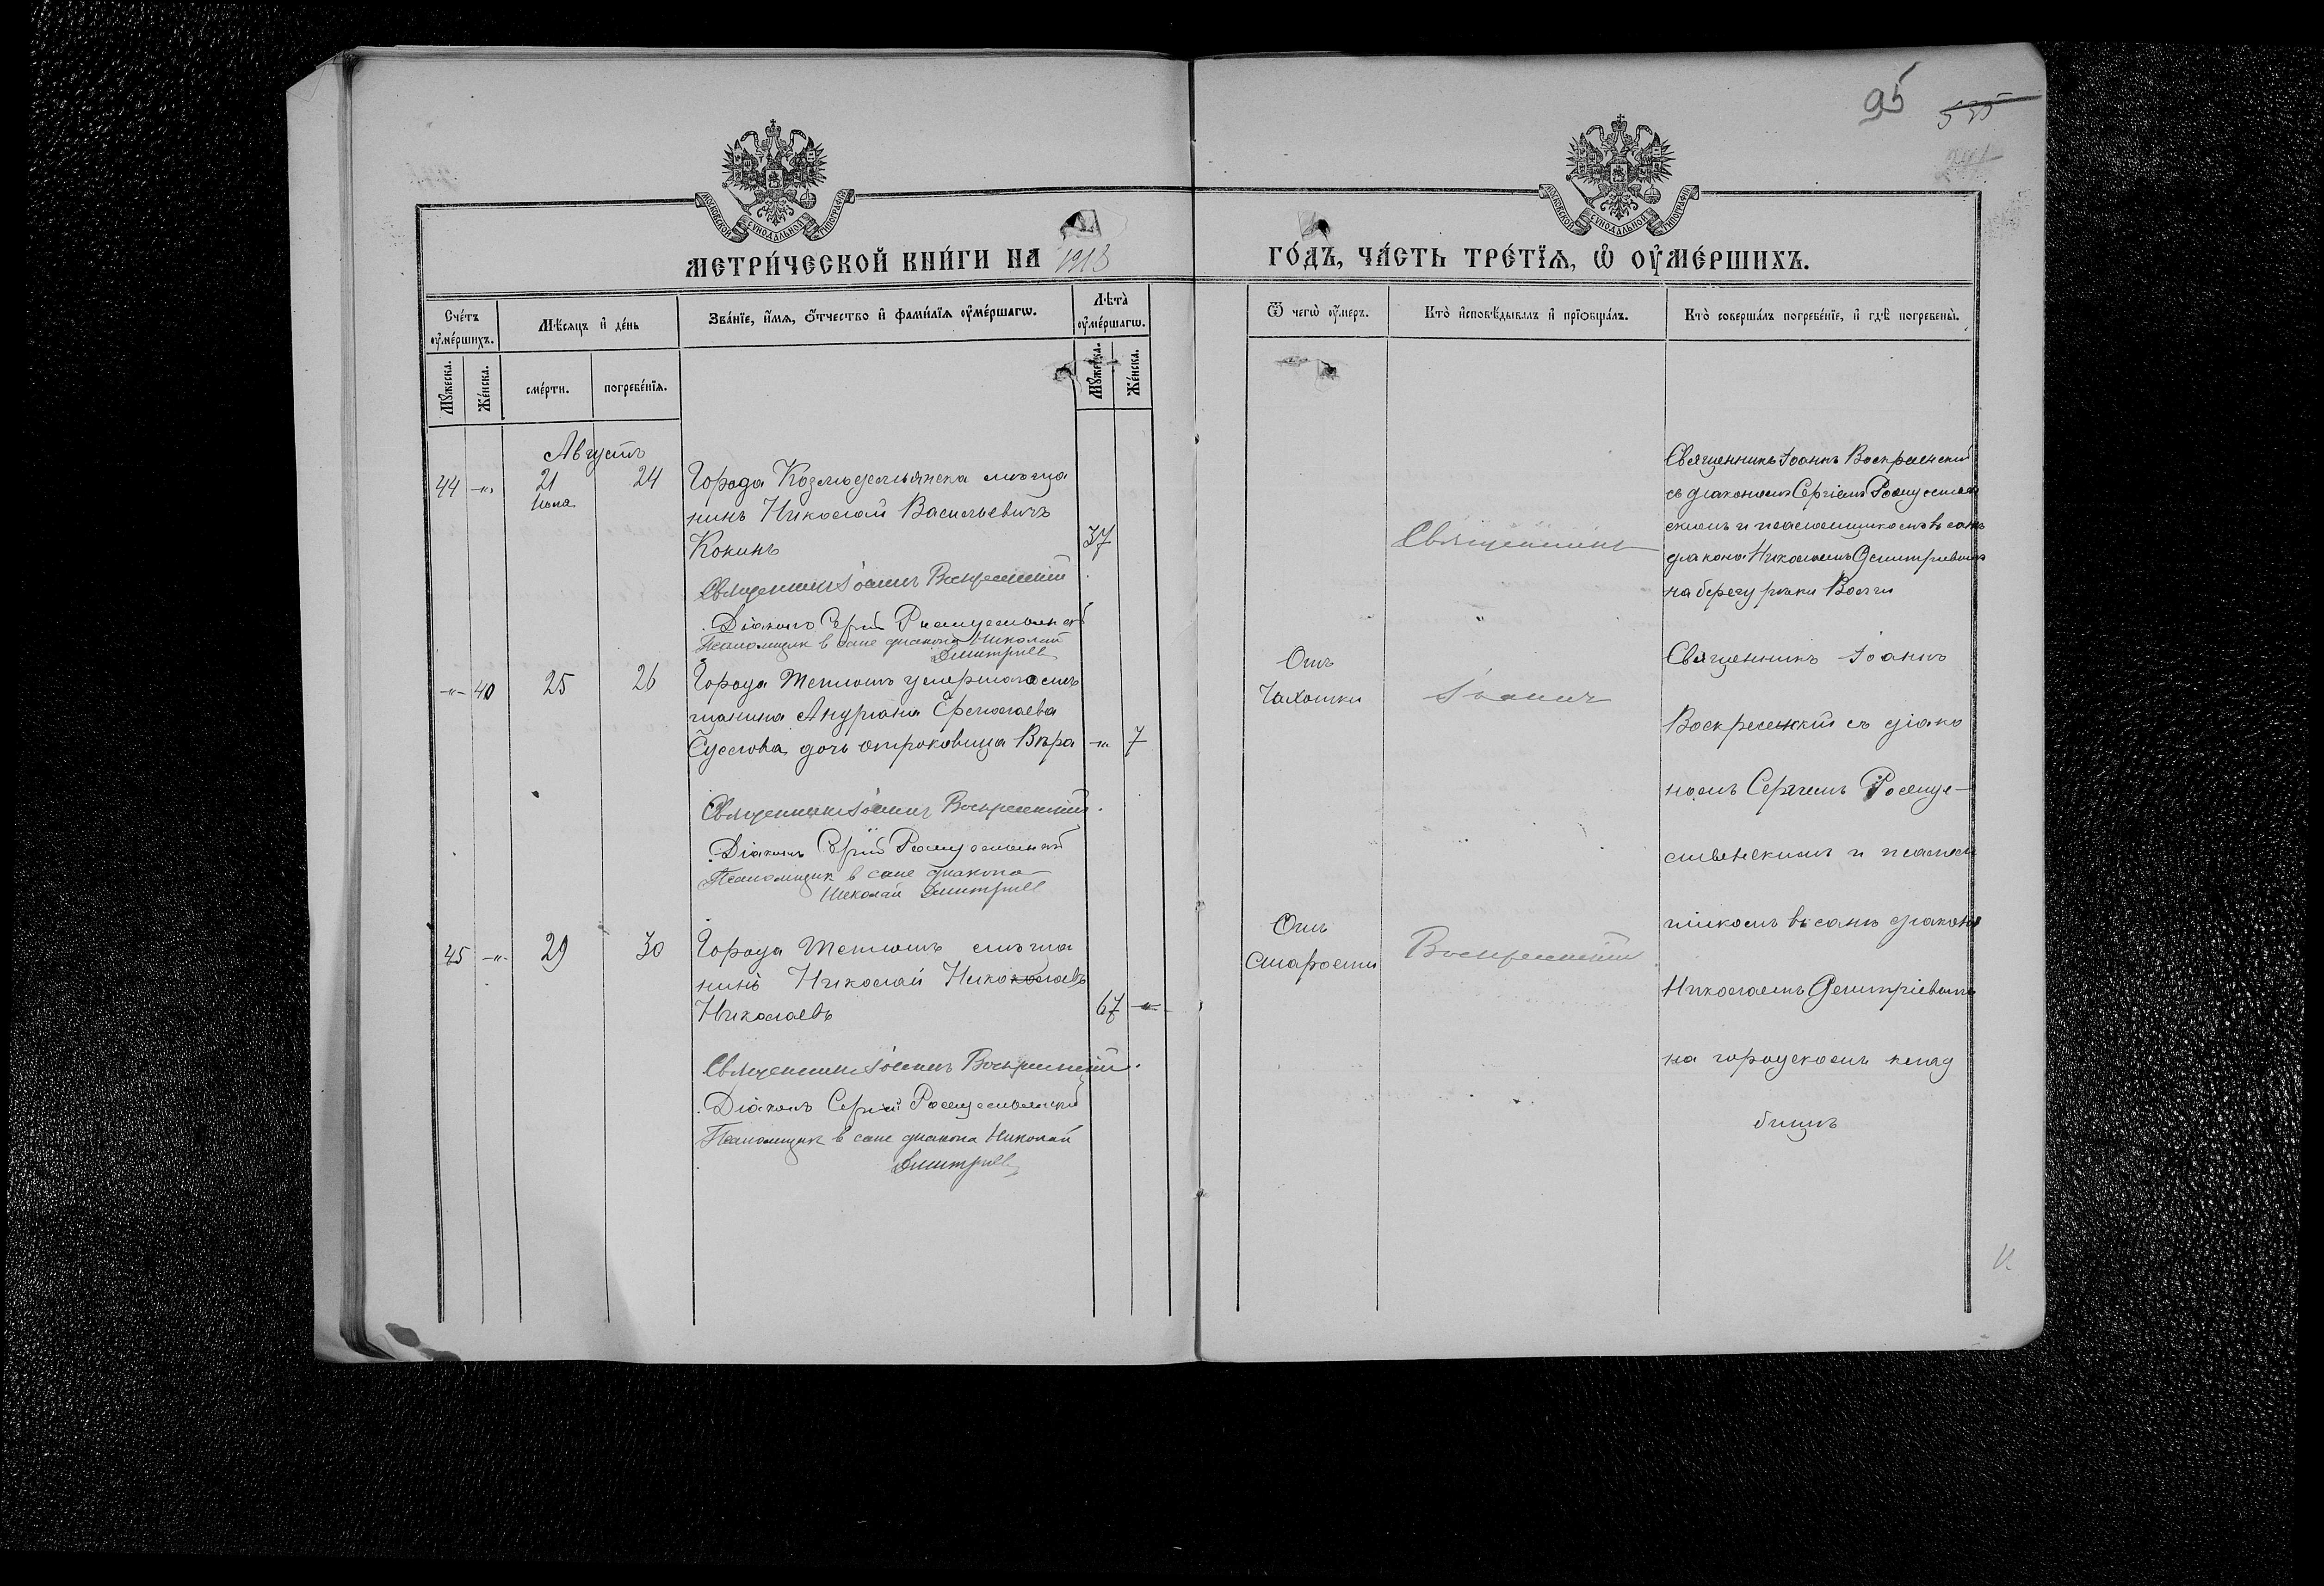 95
535
МОСКОВСКОЙ СѴНОДАЛЬНОЙ ТИПОГРАФІИ
МОСКОВСКОЙ СѴНОДАЛЬНОЙ ТИПОГРАФІИ
МЕТРИ́ЧЕСКОЙ КНИ́ГИ НА 1913 ГО́ДЪ, ЧА́СТЬ ТРЕ́ТЇѦ, Ѡ҆ ОУ҆МЕ́РШИХЪ.
Сче́тъ оу҆ме́ршихъ.
Мѣ́сѧцъ и҆ де́нь
Зва́нїе, и҆́мѧ, ѻ҆́тчество и҆ фами́лїѧ оу҆ме́ршагѡ.
Лѣта̀ оу҆ме́ршагѡ.
Ѿ чегѡ̀ оу҆́меръ.
Кто̀ и҆сповѣ́дывалъ и҆ прїѻбща́лъ.
Кто̀ соверша́лъ погребе́нїе, и҆ гдѣ̀ погребены̀.
Мꙋ́жеска.
Же́нска.
сме́рти.
погребе́нїѧ.
Мꙋ́жеска.
Же́нска.
Августъ
44 -"- 21 24 Города Козмодемьянска мѣща
Июля
нинъ Николай Васильевичъ
Кокинъ 37
Священникъ Іоаннъ Воскресенскій
Діаконъ Сергій Рождественскій
Псаломщик в сане диакона Николай
Дмитриев
Священникъ
Священникъ Іоаннъ Воскресенскій
съ діакономъ Сергіемъ Рождествен
скимъ и псаломщикомъ въ санѣ
діакона Николаемъ Дмитріевымъ
на берегу рѣки Волги
-"- 40 25 26 Города Тетюшъ умершаго мѣ
щанина Андріана Ермолаева
Суслова дочь отроковица Вѣра -"- 7
Священникъ Іоаннъ Воскресенскій.
Діаконъ Сергій Рождественскій
Псаломщик в сане диакона
Николай Дмитриев
Отъ
Чахотки
Іоаннъ
Священникъ Іоаннъ
Воскресенскій съ діако
номъ Сергіемъ Рожде-
ственскимъ и псалом
щикомъ въ санѣ діакона
Николаемъ Дмитріевымъ
на городскомъ клад
бищѣ
45 -"- 29 30 Города Тетюшъ мѣща
нинъ Николай Николаевъ
Николаевъ 67 -"-
Священникъ Іоаннъ Воскресенскій.
Діаконъ Сергій Рождественскій
Псаломщик в сане диакона Николай
Дмитриев
Отъ
Старости
Воскресенскій